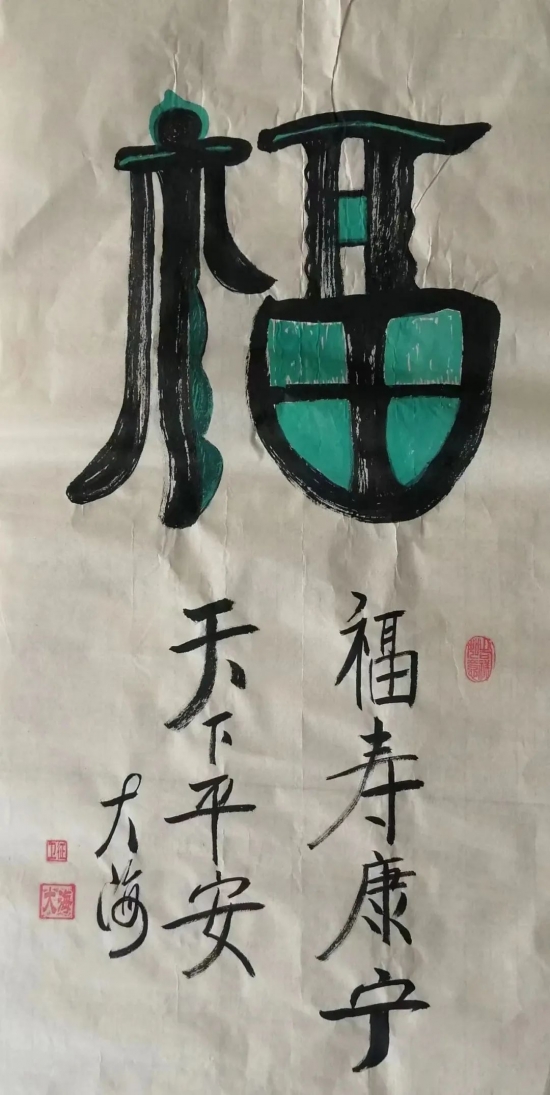 福
福寿康宁
天下平安
大海